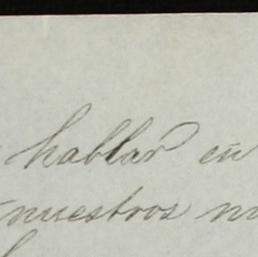 hablar en
nuestros